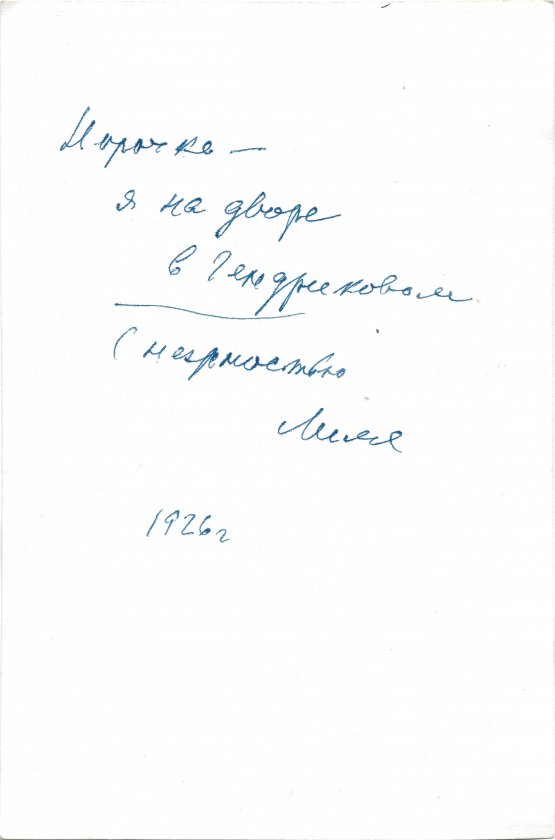 Ирочка —
я на дворе
в Гендриковом
С нежностью
Лиля
1926г